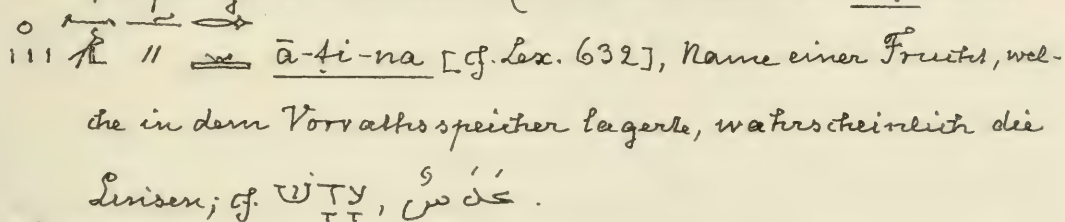 ā-ti-na [cf. Lex. 632], Name einer Frucht, wel-
che in dem Vorrathsspeicher lagerte, wahrscheinlich die
Linsen; cf. עדש, عَدَسٌ.